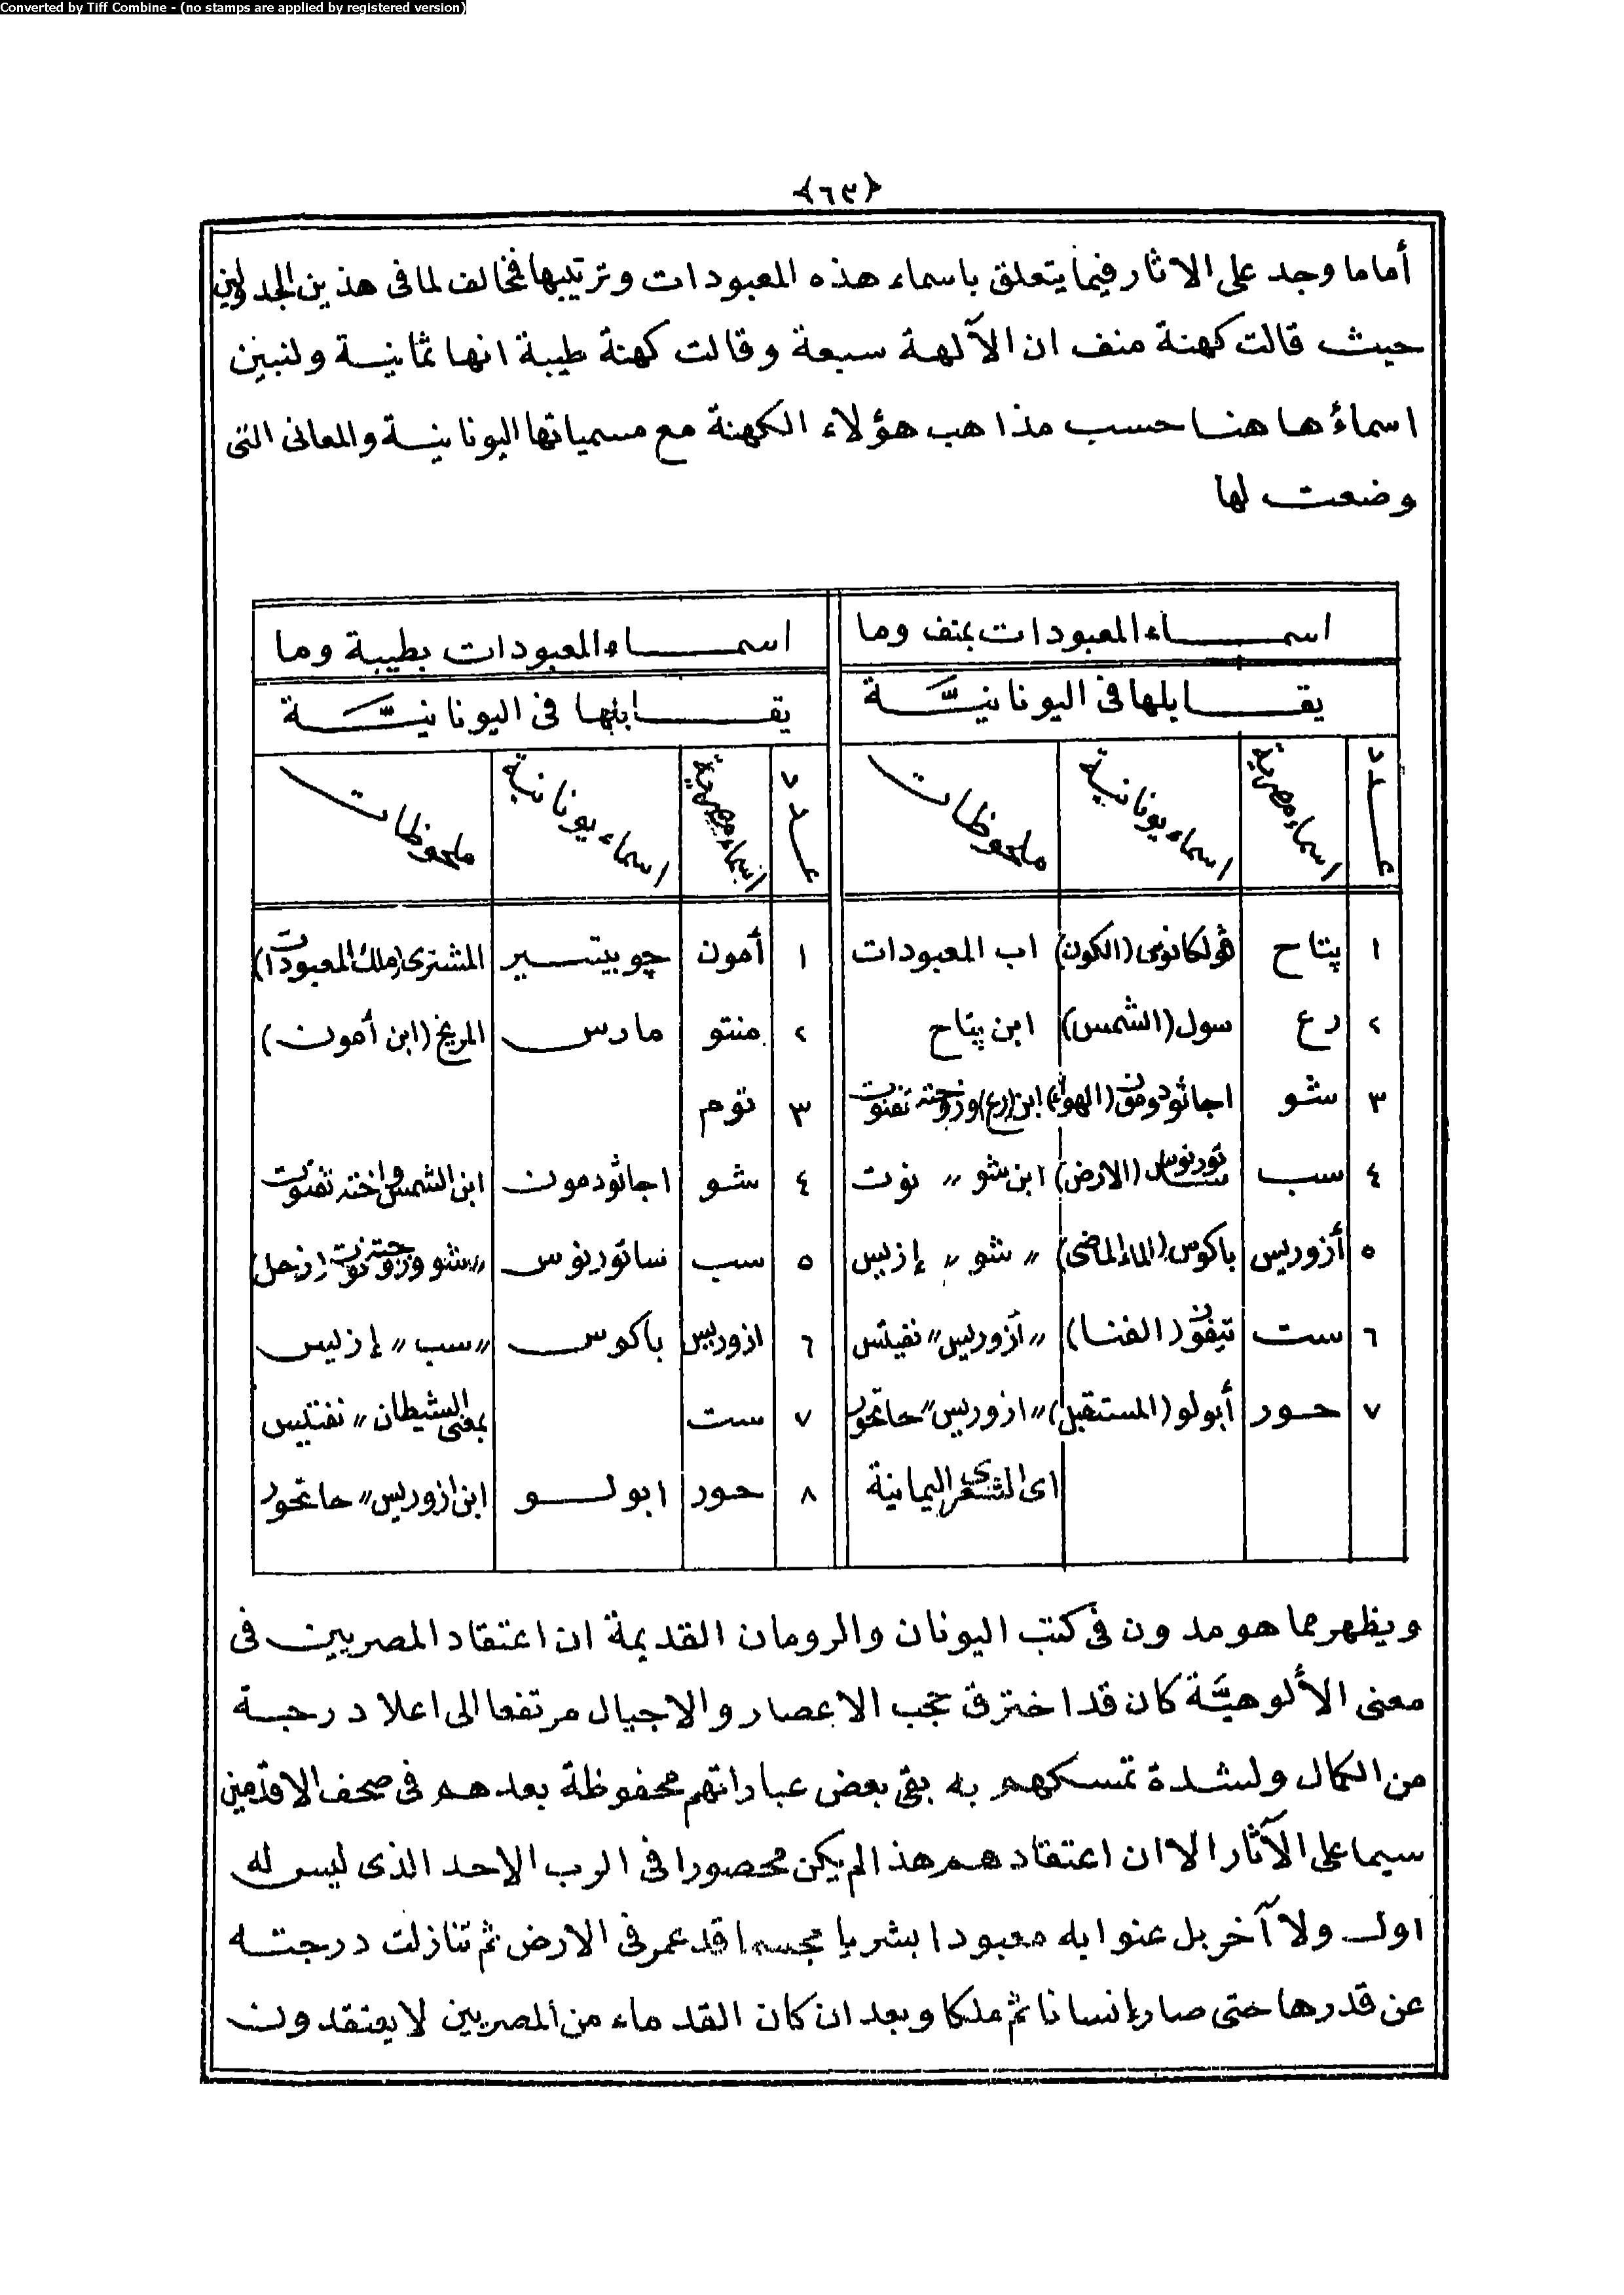 Converted by Tiff Combine - (no stamps are applied by registered version)
﴿٦٣﴾
أما ما وجد على الاثار فيما يتعلق باسماء هذه المعبودات وترتيبها فمخالف لما فى هذين الجدولين
حيث قالت كهنة منف ان الآلهة سبعة وقالت كهنة طيبة انها ثمانية ولنبين
اسماؤها هنا حسب مذاهب هؤلاء الكهنة مع مسمياتها اليونانية والمعانى التى
وضعت لها
اسماء المعبودات بمنف وما
يقابلها فى اليونانيَّة
عدد اسماء مصرية اسماء يونانية ملحوظات
١ پتاح ڤولكانوس (الكون) اب المعبودات
٢ رع سول (الشمس) ابن پتاح
٣ شو اجاثودومون (الهواء) ابن (رع) وزوجته تفنوت
٤ سب (الارض) ابن شو ״ نوت
٥ أزوريس باكوس (الماء الماضى) ״ شو ״ إزيس
٦ ست تيفون (الفنا) ״ أزوريس ״ نفيتس
٧ حور أبولو (المستقبل) ״ ازوريس ״ حاتحور
اى الشعرى اليمانية
اسماء المعبودات بطيبة وما
يقابلها فى اليونانيَّة
عدد اسماء مصرية اسماء يونانية ملحوظات
١ أمون چوبيتير المشترى (ملك المعبودات)
٢ منتو مارس المريخ (ابن أمون)
٣ توم
٤ شو اجاثودمون ابن الشمس واخته تفنوت
٥ سب ساتورنوس ״ شو وزوجته نوت (زحل)
٦ ازوريس باكوس ״ سب ״ إزيس
٧ ست بمعنى الشيطان ״ نفتيس
٨ حور ابولو ابن ازوريس ״ حاتحور
ويظهر مما هو مدون فى كتب اليونان والرومان القديمة ان اعتقاد المصريين فى
معنى الألوهيَّة كان قد اخترق حجب الاعصار والاجيال مرتفعا الى اعلا درجة
من الكمال ولشدة تمسكهم به بقى بعض عباداتهم محفوظة بعدهم فى صحف الاقدمين
سيما على الآثار الا ان اعتقادهم هذا لم يكن محصورا فى الرب الاحد الذى ليس له
اول ولا آخر بل عنوا به معبودا بشريا مجسما قد عمر فى الارض ثم تنازلت درجته
عن قدرها حتى صار إنسانا ثم ملكا وبعد ان كان القدماء من المصريين لا يعتقدون